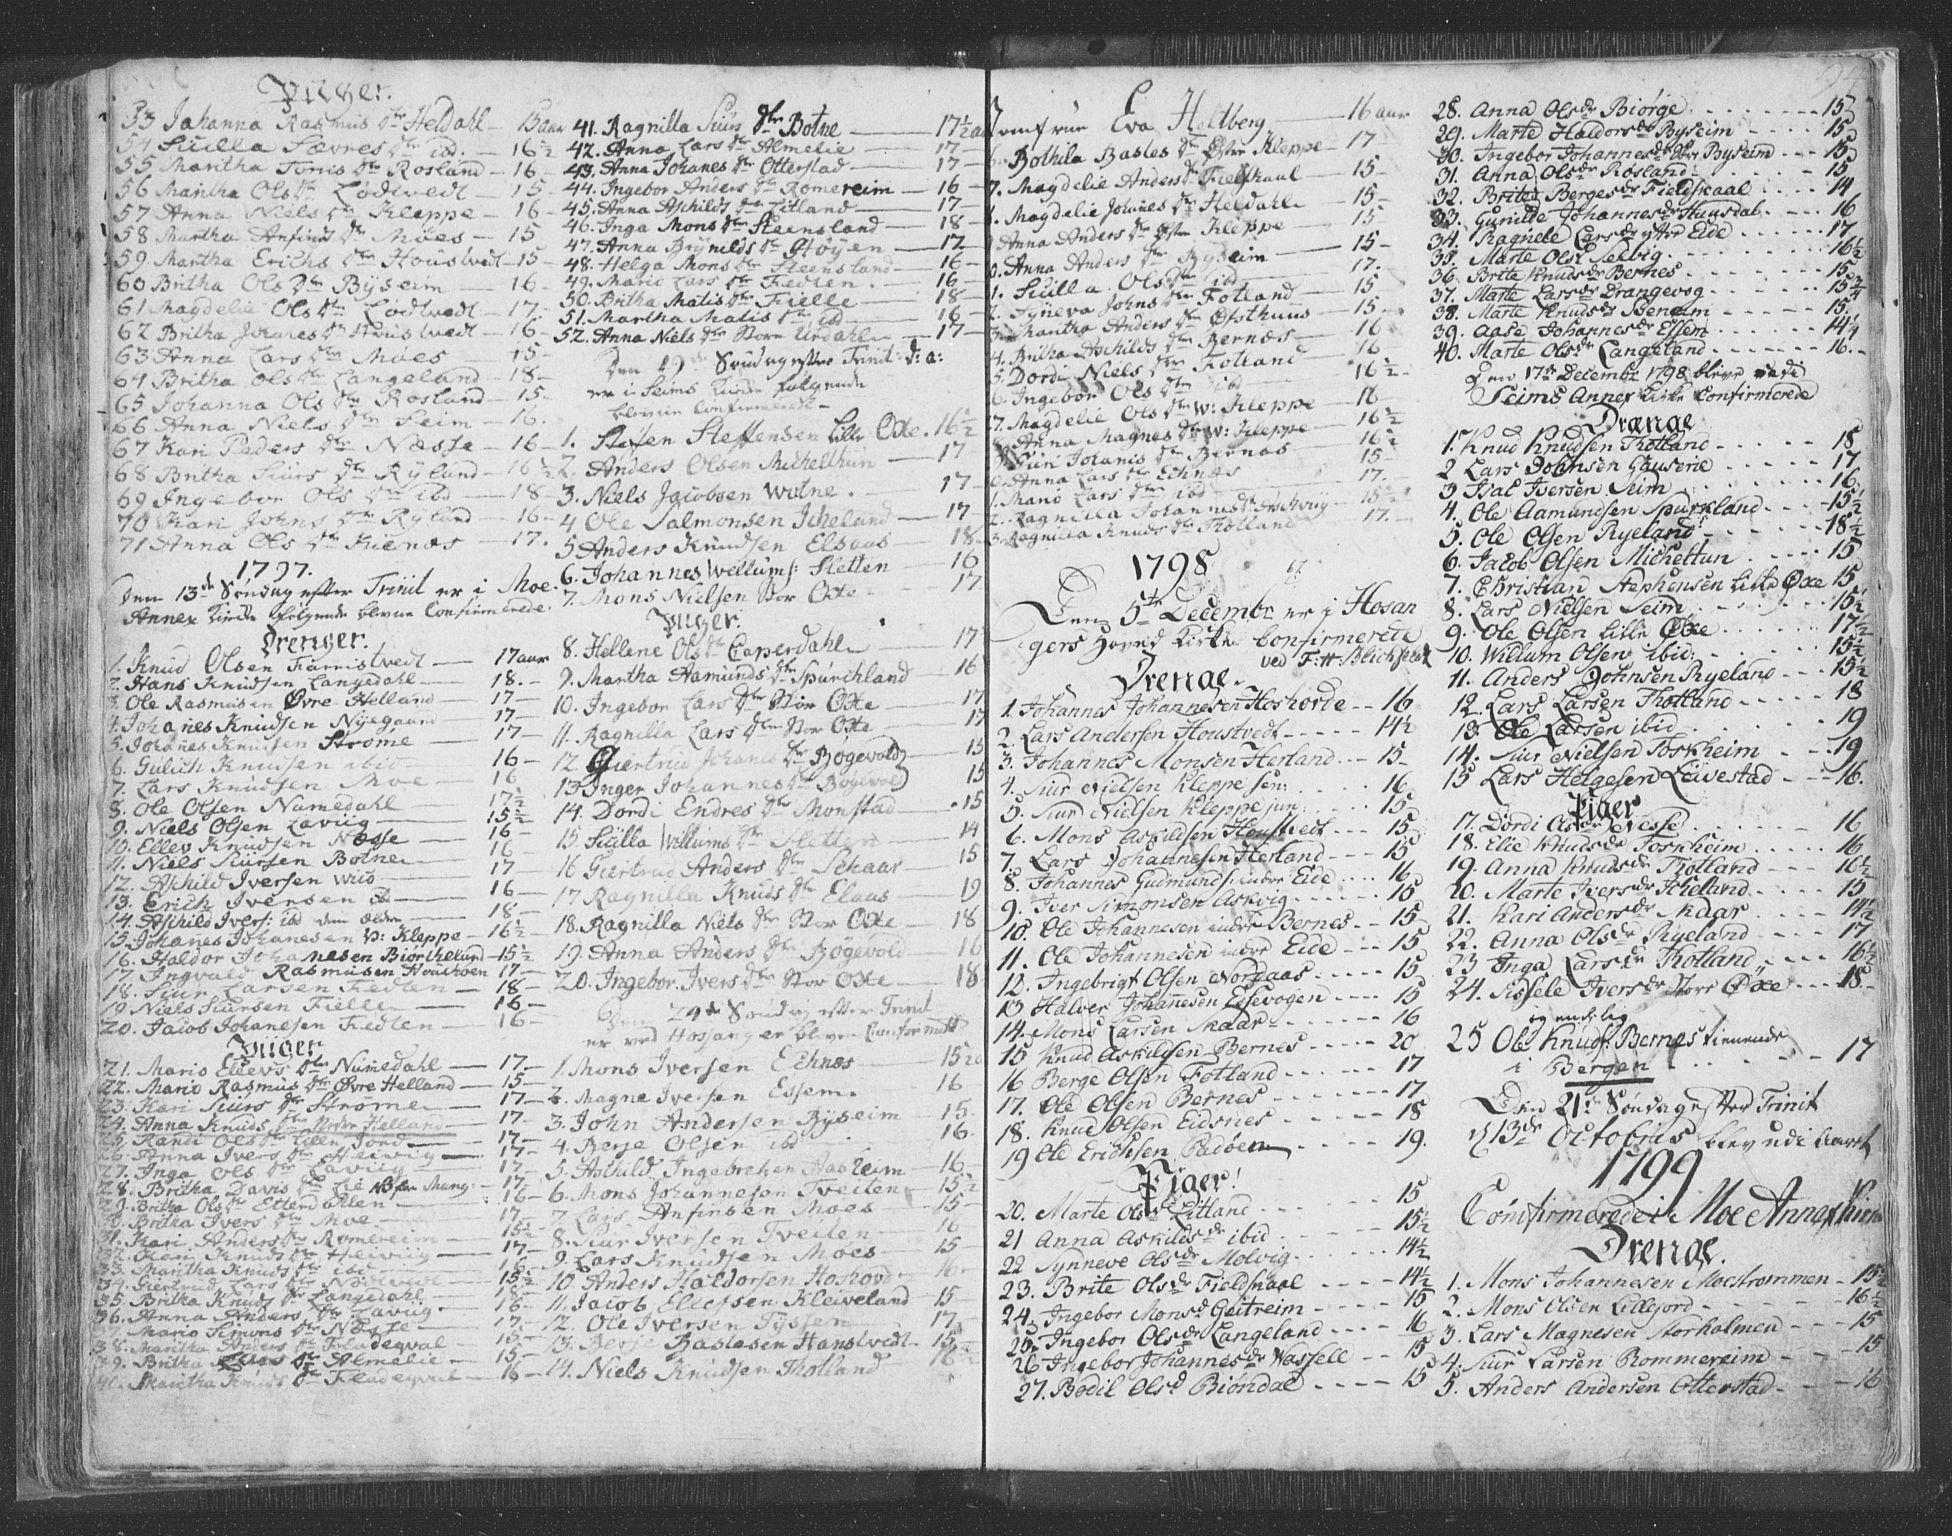 Piiger.
53 Johanna Rasmus dtr Heldahl — 15 aar
54 Siulla Sævres dtr ibd. — 16½
55 Maritha Tonis dtr Rosland — 16 —
56 Maritha Ols dtr Lødtvedt 15
57 Anna Niels dtr Kleppe — 16 —
58 Martha Anfinds dtr Möes — 15
59 Martha Erichs dtr Houstvedt — 15 —
60 Britha Ols dtr Byseim 16 —
61 Magdelie Ols dtr Lødtvedt — 17.
62 Britha Johanes dtr Houstvedt — 16 —
63 Anna Lars dtr Moes — 15 —
64 Britha Ols dtr Langeland — 18 —
65 Johanna Ols dtr Rosland — 15.
66 Anna Niels dtr Seim — 16.
67 Kari Peders dtr Næsse — 16 —
68 Britha Siurs dtr Ryland — 16½
69 Ingebor Ols dtr ibd — 18 —
70 Kari Johns dtr Ryland — 16 —
71 Anna Ols dtr Kienæs — 17.
1797.
Den 13de Søndag efter Trinit er i Moe
Annex Kirke følgende blevne Confirmerede.
Drenger.
1. Knud Olsen Farristvedt — 17 aar
2. Hans Knudsen Langedahl — 18. —
3. Ole Rasmusen Øvre Helland — 17 —
4. Johanes Knudsen Nyegaard — 17 —
5. Johanes Knudsen Strøme — 17 —
6. Gulich Knudsen ibid — 16 —
7. Lars Knudsen Moe — 16
8. Ole Olsen Numedahl 17½
9. Niels Olsen Laviig — 15½
10. Ellev Knudsen Næsse 16 —
11. Niels Siursen Botne — 16
12. Aschild Iversen Wiig — 17 —
13. Erich Iversen ib — 16 —
14. Aschild Ivers: ibd den ældre — 18 —
15. Johanes Johanesen V: Kleppe — 16½
16. Haldor Johannesen Biorkelund — 15½
17. Ingvald Rasmusen Houschoen 17 —
18. Siur Larsen Fedten — 18 —
19. Niels Siursen Fielle — 16 —
20. Jacob Johanesen Fedten — 16 —
Piiger
21. Mario Ellevs dtr Numedahl — 17 —
22. Mario Rasmus dtr Øvre Helland — 15 —
23. Kari Siurs dtr Strøme — 17 —
24. Anna Knuds dtr Nedre Helland — 17.
25. Randi Ols dtr Lille Fiord — 17 —
26. Anna Ivers dtr Heiviig — 17 —
27. Inga Ols dtr Laviig — 17 —
28. Britha Davis dtr Lie — 17 —
29. Britha Ols dtr Etterdahlen — 16 —
30. Britha Ivers dtr Moe — 17
31. Kari Anders dtr Romereim — 15½
32. Kari Knuds dtr Heiviig — 17 —
33. Maritha Knuds dtr ibd — 16 —
34. Giertrud Lars dtr Nedtvedt — 15½
35. Britha Knuds dtr Langedahl — 16 —
36. Anna Anders dtr Laviig — 17 —
37. Mario Simons dtr Næsse — 15 —
38. Maritha Anders dtr Fladeqval — 15
39. Britha Lars dtr Almelie — 15
40. Maritha Knuds dtr Fladeqval — 16 —
41. Ragnilla Siurs dtr Botne — 17½ aar
42. Anna Lars dtr Almelie — 17 —
43. Anna Johanes dtr Otterstad — 17 —
44. Ingebor Anders dtr Romereim — 16 —
45. Anna Aschilds dtr Litland — 17
46. Inga Mons dtr Steensland — 18 —
47. Anna Brynilds dtr Høyen — 17
48. Helga Mons dtr Steensland — 16 —
49. Mario Lars dtr Fedten. — 16 —
50. Britha Matis dtr Fielle — 18 —
51. Martha Matis dtr ibd — 16 —
52. Anna Niels dtr Store Urdahl — 17 —
Den 19de Søndag efter Trinit: d: a:
er i Seims Kirke følgende
blevne Confirmerede —
1. Steffen Steffensen lille Oxe. 16½
2. Anders Olsen Michelthun — 17
3. Niels Jacobsen Wotne. 17 —
4 Ole Salmonsen Icheland — 17
5 Anders Knudsen Elsaas — 18 —
6. Johannes Wellums: Sletten — 16
7. Mons Nielsen Stor Oxe — 17
Piiger.
8. Hellene Ols dtr Eaperdahl — 17
9. Martha Aamunds dtr Spurchland — 16
10. Ingebor Lars dtr Stor Oxe — 17
11. Ragnilla Lars dtr Stor Oxe — 17
12 Giertrud Johanes dtr Bogevold — 15
13 Inger Johannes dtr Bogevold 15
14. Dordi Endres dtr Monstad - 15
15. Siulla Willums dtr Sletten — 14
16 Giertrud Anders dtr Schaar 15
17 Ragnilla Knuds dtr Elsaas 19
18. Ragnilla Niels dtr Stor Oxe — 18
19. Anna Anders dtr Bogevold — 16
20. Ingebor Ivers dtr Stor Oxe — 18
Den 24de Søndag efter Trinit
er ved Hosanger bleven Confirmeret
1. Mons Iversen Echnæs — 15 aar
2. Magne Iversen Essem. 16
3. John Andersen Byseim 15.
4. Berje Olsen ibd 16.
5. Aschild Ingebrechtsen Aasheim — 16
6. Mons Johannesen Tveiten — 15½
7. Lars Anfindsen Moes — 15 —
8. Siur Iversen Tveiten — 16
9. Lars Knudsen Moes 15
10. Anders Haldorsen Hoshovd — 16.
11. Jacob Ellefsen Kleiveland — 15
12. Ole Iversen Tyssen — 17
13. Berje Baslesen Hanstvedt — 15½
14. Niels Knudsen Thotland 16½
Jomfrue Eva Heltberg — 16 aar
6. Bothila Basles dtr Øster Kleppe — 17
7. Magdelie Anders dtr Fielskaal — 15 —
8. Magdelie Johnes dtr Heldahl — 15 —
9 Anna Anders dtr Øster Kleppe — 15
0. Anna Anders dtr Byseim — 15 —
1. Siulla Ols dtr ibd — 17.
2. Syneva Johns dtr Fotland — 15
3. Maritha Anders dtr Østhuus — 15 —
4. Britha Aschilds dtr Bernæs — 16
5. Dordi Niels dtr Fotland — 16
6. Ingebor Ols dtr ibd — 16½
7. Magdelie Ols dtr W: Kleppe — 16
8. Anna Magnes dtr W: Kleppe — 16½
9. Siuri Johanis dtr Bernæs — 16½
0. Anna Lars dtr Echnæs — 15 —
1. Mario Lars dtr ibd — 17.
2. Ragnilla Johannes dtr — 15½
3. Ragnilla Knuds dtr Thotland — 17.
1798
Den 5te Decembr er i Hosan
gers Hoved Kirke Confirmerede
ved F: H: Blichfeldt
Drenge.
1. Johannes Johannesen Hoshovde -- 16
2. Lars Andersen Houstvedt - - - - - 14½
3. Johannes Monsen Herland - - 15 -
4. Siur Nielsen Kleppe sen: . . . . 16
5. Siur Nielsen Kleppe jun: . . . . 15
6. Mons Askildsen Houstvedt - - - 15
7. Lars Johannesen Herland - - - 15
8. Johannes Gudmunds: indre Eide . . . . 16
9. Iver Simonsen Askvig - - - - - 15
10. Ole Johannesen indre Bernes - - 15
11. Ole Johannesen indre Eide - - - 15
12. Ingebrigt Olsen Nordaas - - - - - 15
13 Halver Johannesen Essevogen - - - - 15
14. Mons Larsen Skaar - - - - - - 16
15 Knud Askildsen Bernes - - - - - 20
16 Berge Olsen Fotland - - - - - - 17
17. Ole Olsen Bernes - - - - - - 17
18. Knud Olsen Eidsnes - - - - - - 18
19 Ole Erichsen Padøen — 19.
Piger!
20. Marte Olsdr Litland - - - 15
21 Anna Askildsdr ibid - - - - 15½
22 Synneve Olsdr Molvig - - - - 14½
23. Brite Olsdr Fieldskaal - - - - 14½
24. Ingebor Monsd Geitreim - - - - 15
25 Ingebor Olsdr Langeland - - - - 16
26 Ingebor Johannesdr Wassell - - 15
27. Bodil Olsd Biøndal - - - - - 15
28. Anna Olsdr Biørge - - - - - 15
29. Marte Haldorsdr Byseim - - - - 15
30. Ingebor Johannesdr Byseim - - - 15
31. Anna Olsdr Rosland - - - - - 15
32. Brita Bergesdr Fieldskaal - - - 14
33. Gurilde Johannesdr Huusdal - - - 16
34. Ragnele Larsdr ytre Eide - - - 17
35. Marte Olsd Selvig - - - - 16½
36. Brite Knudsdr Bernes - - - - 15
37. Marte Larsdr Drangevog - - - - 15¾
38. Marte Knudsdr Isenum - - - - 15
39. Aase Johannesdr Essem - - - - 14½
40. Marte Olsdr Langeland - - - - 16.
Den 17de Decembr 1798 bleve udi
Seims Annex Kirke Confirmerede
Drenge
1. Knud Knudsen Thotland - - - - 18
2 Lars Johnsen Gauserie - - - - 17
3 Isak Iversen Seim - - - - 16
4. Ole Aamundsen Spurkland - - - 15½
5. Ole Olsen Ryeland - - - - 18½
6. Jacob Olsen Michettun - - - - 15
7. Christian Stephensen lille Oxe 15
8. Lars Nielsen Seim - - - - - 15½
9. Ole Olsen lille Oxe - - - - 17½
10. Willum Olsen ibid: - - - - 15½
11. Anders Johnsen Ryeland - - - 15½
12. Lars Larsen Thotland - - - - 18
13. Ole Larsen ibid - - - - - 19
14. Siur Nielsen Torkheim - - - 19
15 Lars Helgesen Leivestad - - - 16.
Piger
17. Dordi Asdr Nesse - - - - 16
18. Elie Knudsdr Torkheim - - - - 16
19. Anna Knudsdr Thotland - - - - 16½
20. Marte Iversdr Icheland - - - - 15
21. Kari Andersdr Skaar - - - - 14½
22. Anna Olsdr Ryeland - - - - 17
23 Inga Larsdr Thotland - - - - 16½
24. Sissele Iversdr Stor Oxe - - - 18
og endelig
25 Ole Knuds: Bernes tienende
i Bergen - - - - 17
Den 21de Søndag efter Trinit
d 13de Octobris blev udi Aaret
1799
Confirmerede i Moe Annex Kirke
Drenge.
1. Mons Johannesen Moestrømmen - 15½
2. Mons Olsen Lillefiord - - - - 16½
3. Lars Magnesen Storholmen - - - 15
4. Siur Larsen Rommereim - - - - 15
5. Anders Andersen Otterstad - - - 16